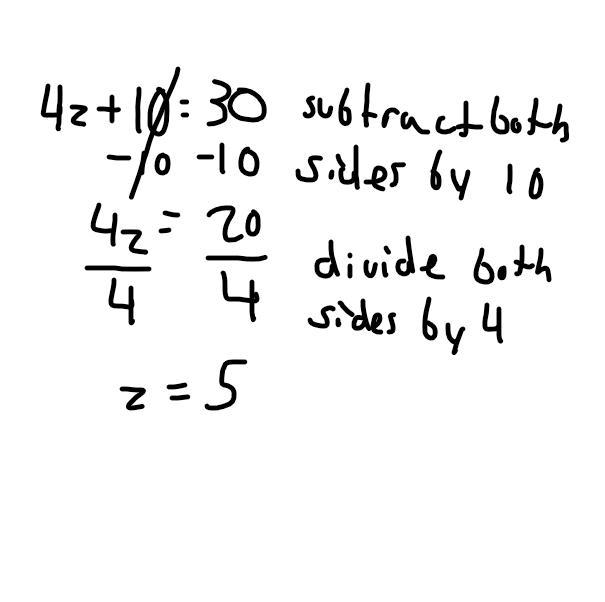 4z + 10 = 30 subtract both
- 10 - 10 sides by 10
4z = 20
4 4
divide both
sides by 4
z = 5